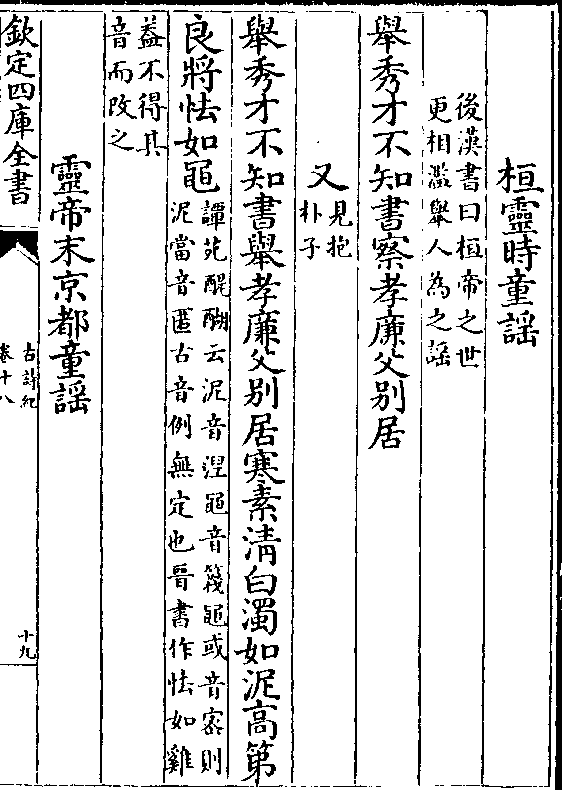 桓靈時童謡
後漢書曰桓帝之世
更相濫舉人為之謡
舉秀才不知書察孝廉父别居
又
見抱
朴子
舉秀才不知書舉孝廉父别居寒素清白濁如泥髙第
良將怯如黽
譚苑醍醐云泥音湼黽音篾黽或音密則
泥當音匿古音例無定也晉書作怯如雞
葢不得其
音而改之
靈帝末京都童謡
欽定四庫全書
古詩紀
卷十八
十九